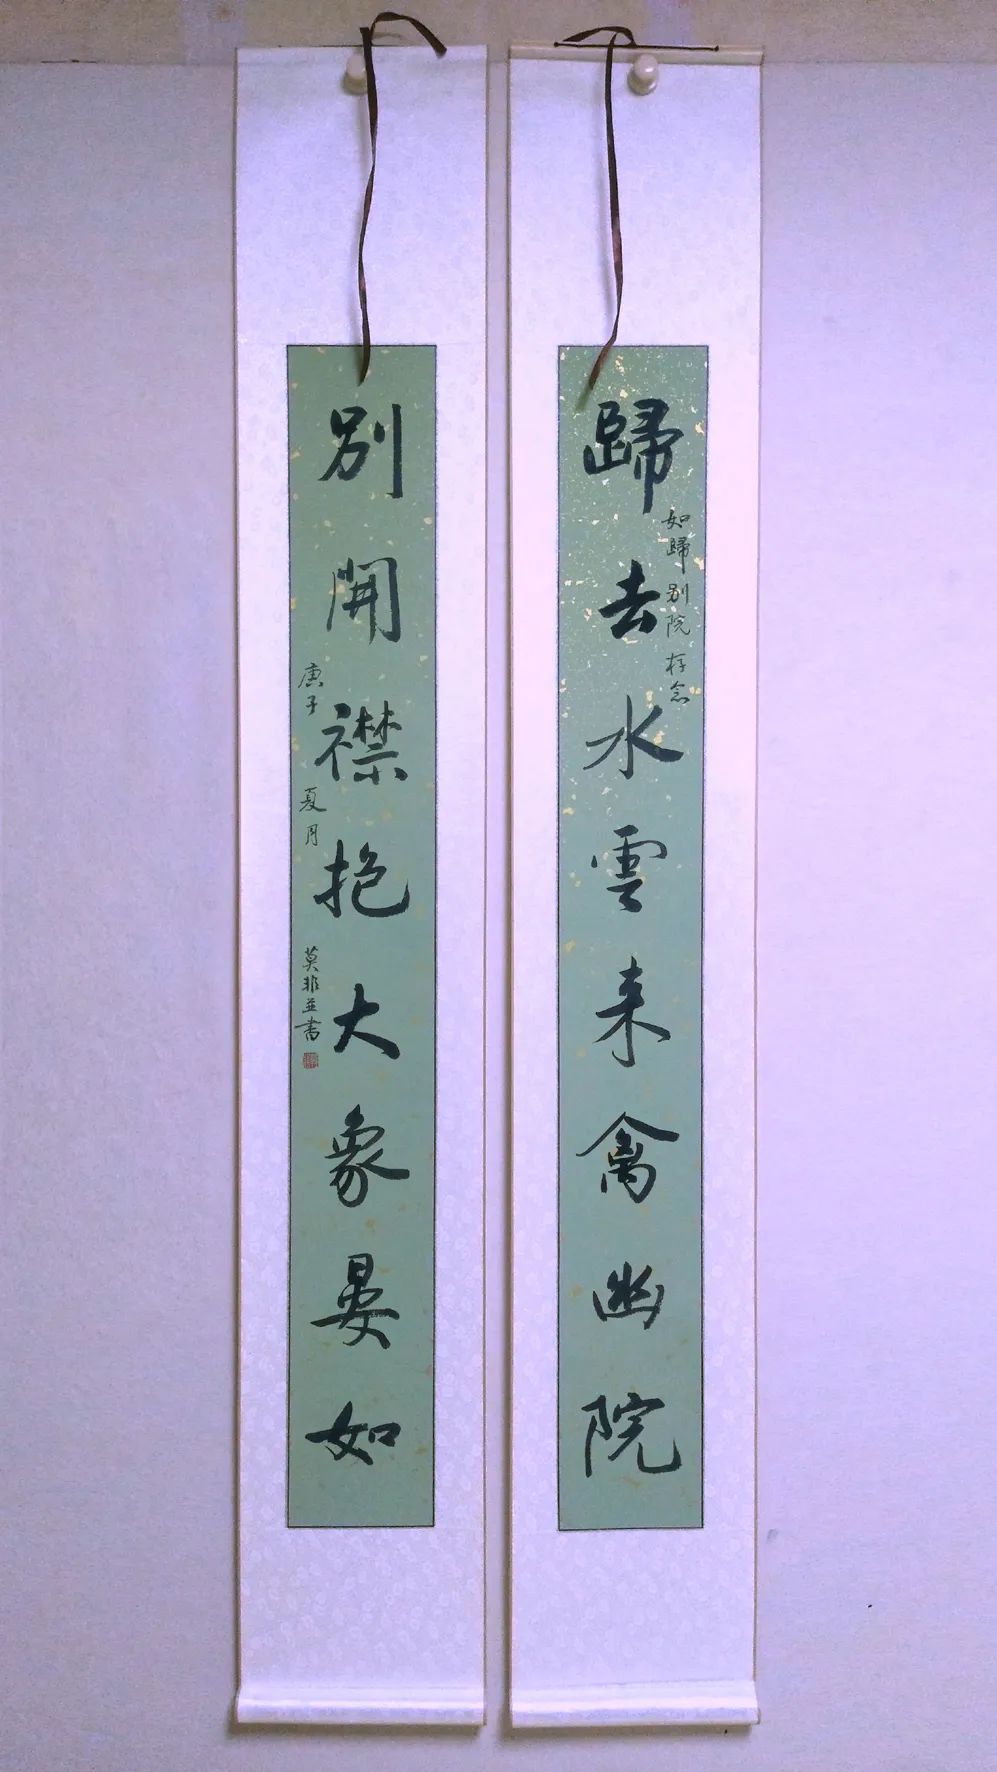 歸去水雲来禽幽院
如歸别院存念
别開襟抱大象晏如
庚子夏月莫非並書